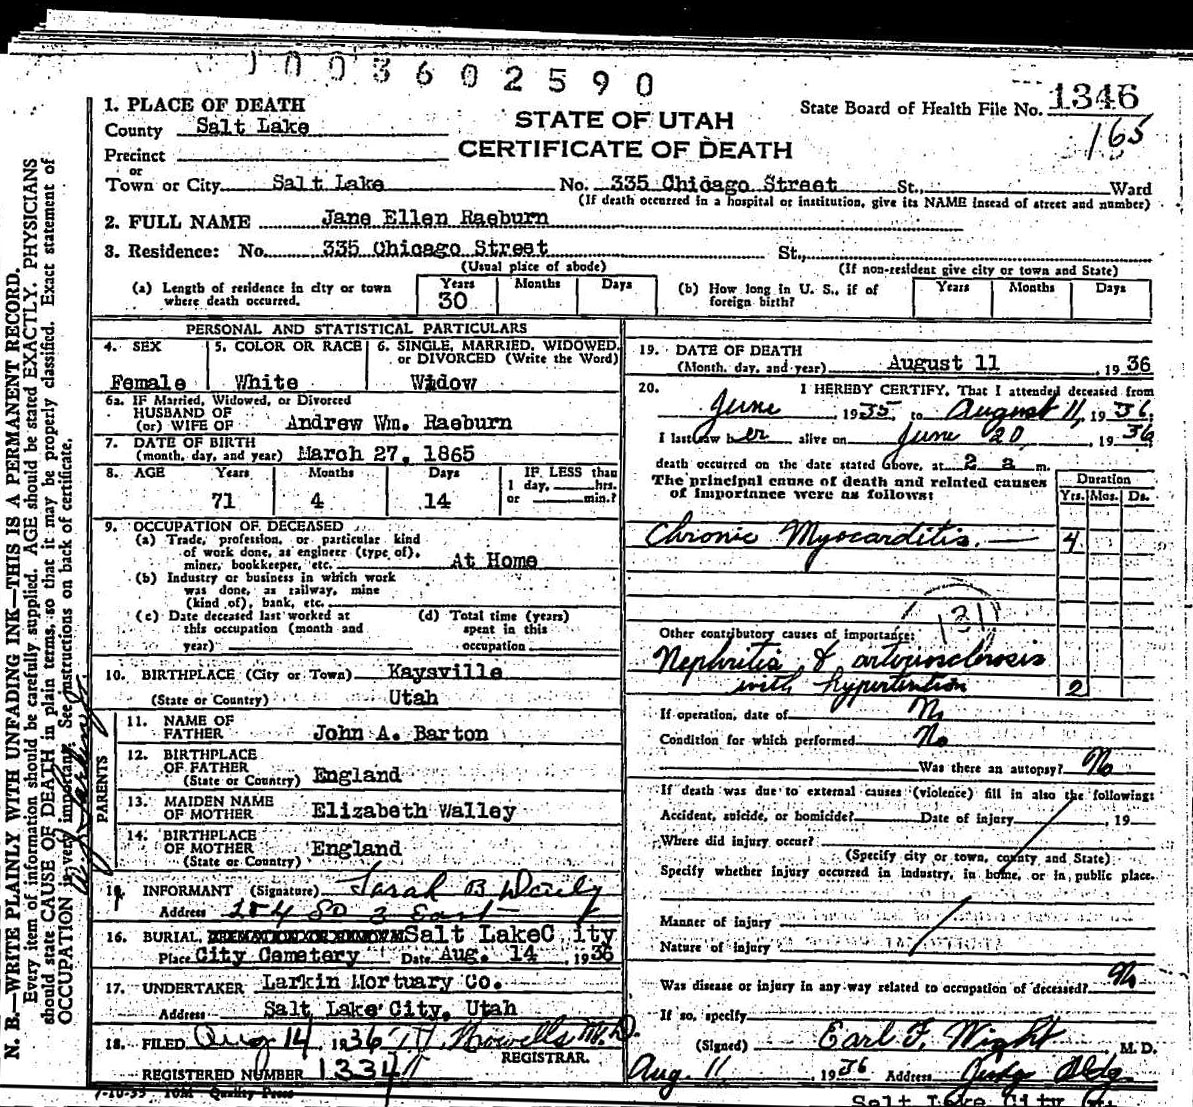 1003602590
1. PLACE OF DEATH
County Salt Lake
Precinct
or
Town or City Salt Lake No. 335 Chicago Street St., Ward
(If death occurred in a hospital or institution, give its NAME insead of street and number)
STATE OF UTAH
CERTIFICATE OF DEATH
State Board of Health File No. 1346
165
2. FULL NAME Jane Ellen Raeburn
3. Residence: No. 335 Chicago Street St.,
(Usual place of abode) (If non-resident give city or town and State)
(a) Length of residence in city or town where death occurred. Years 30 Months Days
(b) How long in U. S., if of foreign birth? Years Months Days
PERSONAL AND STATISTICAL PARTICULARS
4. SEX Female
5. COLOR OR RACE White
6. SINGLE, MARRIED, WIDOWED, or DIVORCED (Write the Word) Widow
6a. IF Married, Widowed, or Divorced
HUSBAND OF
(or) WIFE OF Andrew Wm. Raeburn
7. DATE OF BIRTH
(month, day, and year) March 27, 1865
8. AGE Years Months Days IF LESS than
1 day, hrs.
71 4 14 or min.?
9. OCCUPATION OF DECEASED
(a) Trade, profession, or particular kind
of work done, as engineer (type of),
miner, bookkeeper, etc. At Home
(b) Industry or business in which work
was done, as railway, mine
(kind of), bank, etc.
(c) Date deceased last worked at
this occupation (month and
year)
(d) Total time (years)
spent in this
occupation
10. BIRTHPLACE (City or Town) Kaysville
(State or Country) Utah
PARENTS
11. NAME OF
FATHER John A. Barton
12. BIRTHPLACE
OF FATHER
(State or Country) England
13. MAIDEN NAME
OF MOTHER Elizabeth Walley
14. BIRTHPLACE
OF MOTHER
(State or Country) England
INFORMANT (Signature) Sarah B
Address 254 So 3 East
16. BURIAL, Salt LakeC ity
Place City Cemetery Date Aug. 14, 1936
17. UNDERTAKER Larkin Mortuary Co.
Address Salt Lake City, Utah
18. FILED Aug 14 1936 M.D.
REGISTRAR.
REGISTERED NUMBER 1334
7-10-35 10M Quality Press
19. DATE OF DEATH
(Month, day, and year) August 11, 1936
20. I HEREBY CERTIFY, That I attended deceased from
June, 1935, to August 11, 1936.
I last saw her alive on June 20, 1936
death occurred on the date stated above, at 2 a m.
The principal cause of death and related causes
of importance were as follows:
Duration
Yrs. Mos. Ds.
Chronic Myocarditis. 4
131
Other contributory causes of importance:
Nephritis & arteriosclerosis
with hypertention 2
If operation, date of No
Condition for which performed No
Was there an autopsy? No
If death was due to external causes (violence) fill in also the following:
Accident, suicide, or homicide? Date of injury, 19
Where did injury occur?
(Specify city or town, county and State)
Specify whether injury occurred in industry, in home, or in public place.
Manner of injury
Nature of injury
Was disease or injury in any way related to occupation of deceased? No
If so, specify
(Signed) Earl F. Wight M. D.
Aug. 11 1936 Address Judge Bldg
Salt Lake City
N. B.—WRITE PLAINLY WITH UNFADING INK—THIS IS A PERMANENT RECORD.
Every item of information should be carefully supplied. AGE should be stated EXACTLY. PHYSICIANS
should state CAUSE OF DEATH in plain terms, so that it may be properly classified. Exact statement of
OCCUPATION is very important. See instructions on back of certificate.